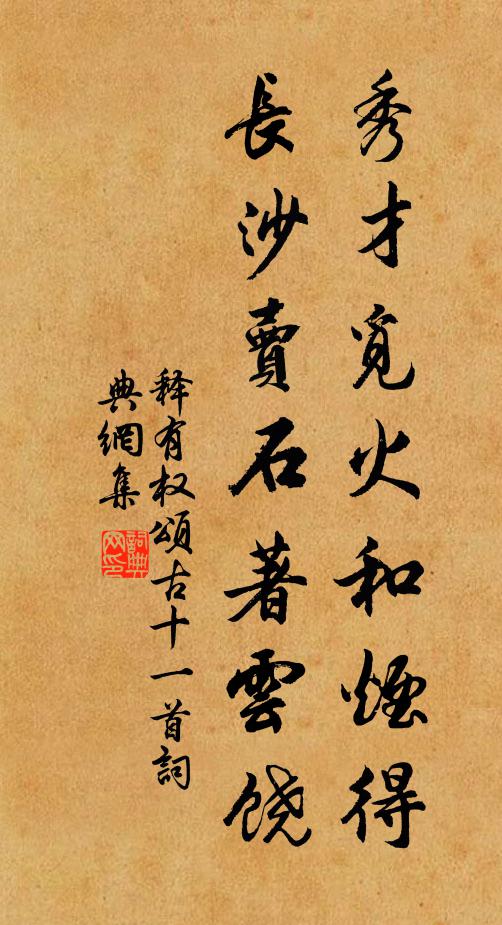 秀才覓火和煙得
長沙賣石著雲饶
释有权頌古十一首詞
典網集
詞典網印